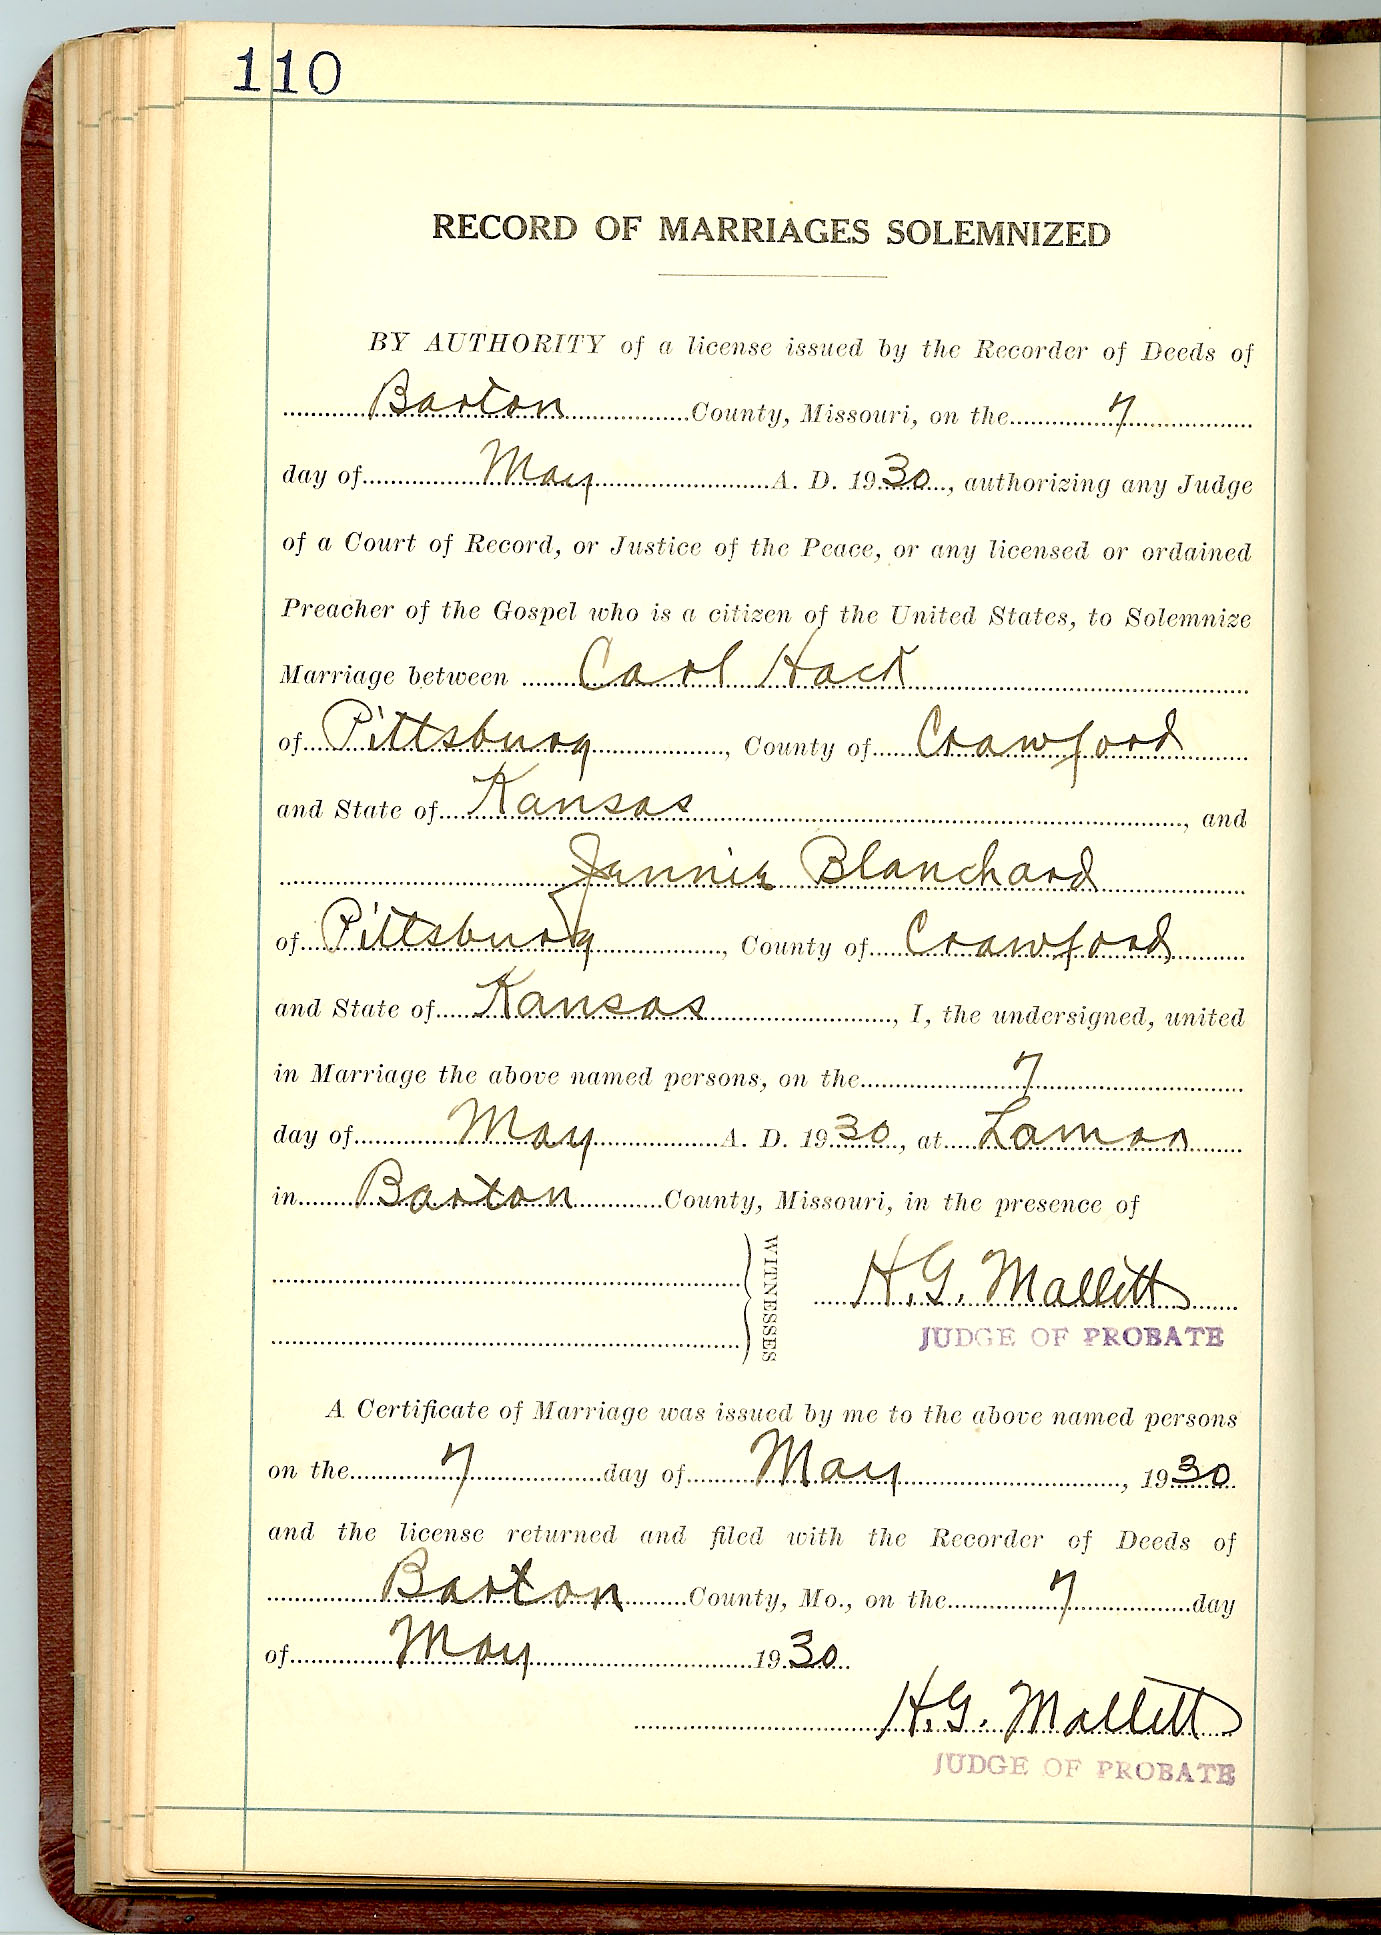 110
RECORD OF MARRIAGES SOLEMNIZED
BY AUTHORITY of a license issued by the Recorder of Deeds of
Barton County, Missouri, on the 7
day of May A. D. 1930, authorizing any Judge
of a Court of Record, or Justice of the Peace, or any licensed or ordained
Preacher of the Gospel who is a citizen of the United States, to Solemnize
Marriage between Carl Hack
of Pittsburg, County of Crawford
and State of Kansas, and
Jennie Blanchard
of Pittsburg, County of Crawford
and State of Kansas, I, the undersigned, united
in Marriage the above named persons, on the 7
day of May A. D. 1930, at Lamar
in Barton County, Missouri, in the presence of
WITNESSES
H. G. Mallett
JUDGE OF PROBATE
A Certificate of Marriage was issued by me to the above named persons
on the 7 day of May, 1930
and the license returned and filed with the Recorder of Deeds of
Barton County, Mo., on the 7 day
of May 1930
H. G. Mallett
JUDGE OF PROBATE